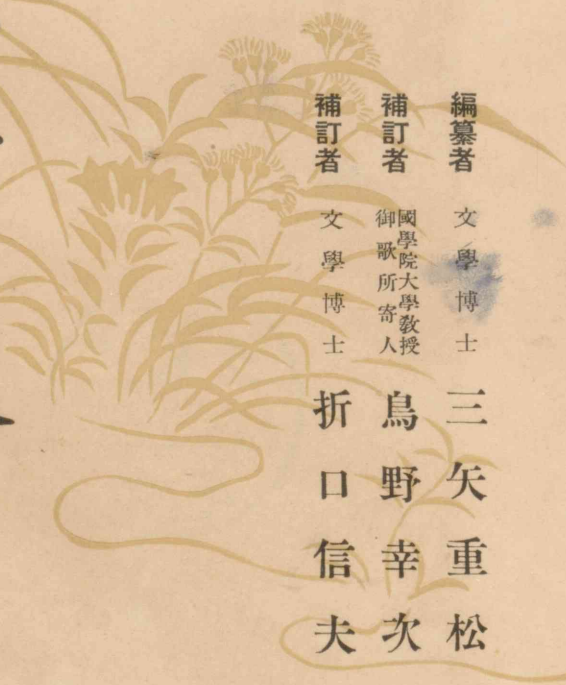 編纂者 文學博士 三矢重松
補訂者 國學院大學敎授 御歌所寄人 鳥野幸次
補訂者 文學博士 折口信夫